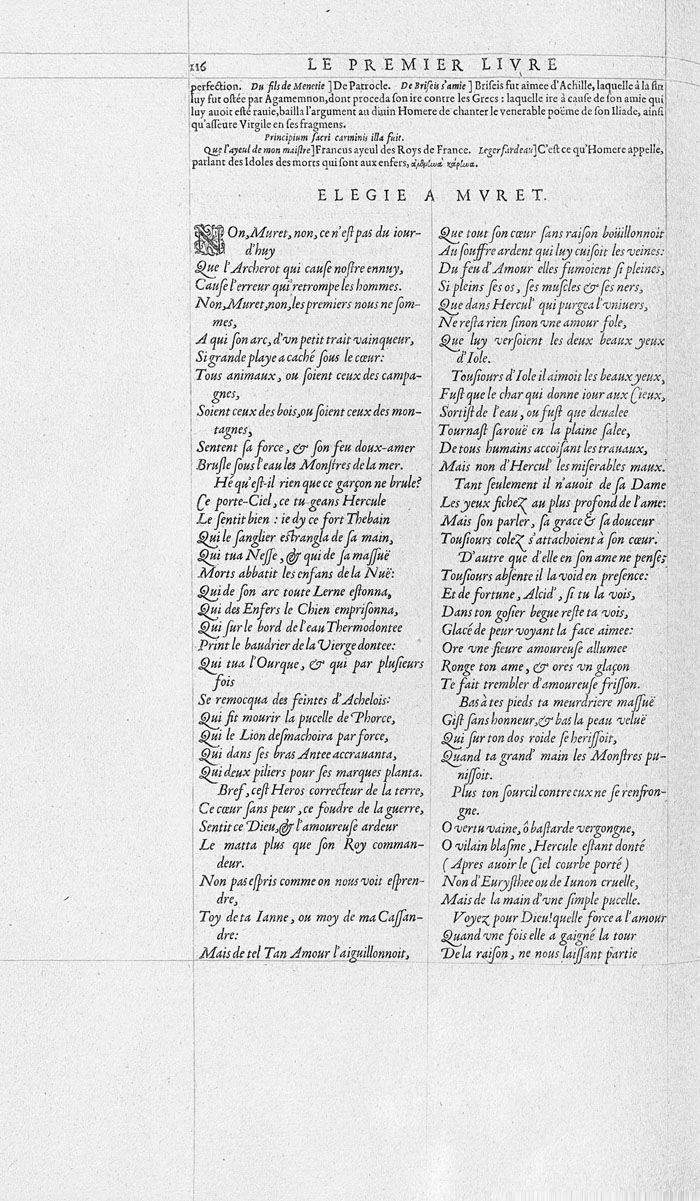 116
LE PREMIER LIVRE
perfection. Du fils de Menetie ] De Patrocle. De Briseis s'amie ] Briseis fut aimee d'Achille, laquelle à la fin
luy fut ostée par Agamemnon, dont proceda son ire contre les Grecs : laquelle ire à cause de son amie qui
luy auoit esté rauie, bailla l'argument au diuin Homere de chanter le venerable poëme de son Iliade, ainsi
qu'asseure Virgile en ses fragmens.
Principium sacri carminis illa fuit.
Que l'ayeul de mon maistre ] Francus ayeul des Roys de France. Leger fardeau ] C'est ce qu'Homere appelle,
parlant des Idoles des morts qui sont aux enfers,
ELEGIE A MVRET.
NOn, Muret, non, ce n'est pas du iour-
d'huy
Que l'Archerot qui cause nostre ennuy,
Cause l'erreur qui retrompe les hommes.
Non, Muret, non, les premiers nous ne som-
mes,
A qui son arc, d'vn petit trait vainqueur,
Si grande playe a caché sous le cœur:
Tous animaux, ou soient ceux des campa-
gnes,
Soient ceux des bois, ou soient ceux des mon-
tagnes,
Sentent sa force, & son feu doux-amer
Brusle sous l'eau les Monstres de la mer.
Hé qu'est-il rien que ce garçon ne brule?
Ce porte-Ciel, ce tu-geans Hercule
Le sentit bien : ie dy ce fort Thebain
Qui le sanglier estrangla de sa main,
Qui tua Nesse, & qui de sa massuë
Morts abbatit les enfans de la Nuë:
Qui de son arc toute Lerne estonna,
Qui des Enfers le Chien emprisonna,
Qui sur le bord de l'eau Thermodontee
Print le baudrier de la Vierge dontee:
Qui tua l'Ourque, & qui par plusieurs
fois
Se remocqua des feintes d'Achelois:
Qui fit mourir la pucelle de Phorce,
Qui le Lion desmachoira par force,
Qui dans ses bras Antee accrauanta,
Qui deux piliers pour ses marques planta.
Bref, cest Heros correcteur de la terre,
Ce cœur sans peur, ce foudre de la guerre,
Sentit ce Dieu, & l'amoureuse ardeur
Le matta plus que son Roy comman-
deur.
Non pas espris comme on nous voit espren-
dre,
Toy de ta Ianne, ou moy de ma Cassan-
dre:
Mais de tel Tan Amour l'aiguillonnoit,
Que tout son cœur sans raison boüillonnoit
Au souffre ardent qui luy cuisoit les veines:
Du feu d'Amour elles fumoient si pleines,
Si pleins ses os, ses muscles & ses ners,
Que dans Hercul' qui purgea l'vniuers,
Ne resta rien sinon vne amour fole,
Que luy versoient les deux beaux yeux
d'Iole.
Tousiours d'Iole il aimoit les beaux yeux,
Fust que le char qui donne iour aux Cieux,
Sortist de l'eau, ou fust que deualee
Tournast sa rouë en la plaine salee,
De tous humains accoisant les trauaux,
Mais non d'Hercul' les miserables maux.
Tant seulement il n'auoit de sa Dame
Les yeux fichez au plus profond de l'ame:
Mais son parler, sa grace & sa douceur
Tousiours colez s'attachoient à son cœur.
D'autre que d'elle en son ame ne pense;
Tousiours absente il la void en presence:
Et de fortune, Alcid', si tu la vois,
Dans ton gosier begue reste ta vois,
Glacé de peur voyant la face aimee:
Ore vne fieure amoureuse allumee
Ronge ton ame, & ores vn glaçon
Te fait trembler d'amoureuse frisson.
Bas à tes pieds ta meurdriere massuë
Gist sans honneur, & bas la peau veluë
Qui sur ton dos roide se herissoit,
Quand ta grand' main les Monstres pu-
nissoit.
Plus ton sourcil contre eux ne se renfron-
gne.
O vertu vaine, ô bastarde vergongne,
O vilain blasme, Hercule estant donté
(Apres auoir le Ciel courbe porté)
Non d'Eurysthee ou de Iunon cruelle,
Mais de la main d'vne simple pucelle.
Voyez pour Dieu! quelle force a l'amour
Quand vne fois elle a gaigné la tour
De la raison, ne nous laissant partie